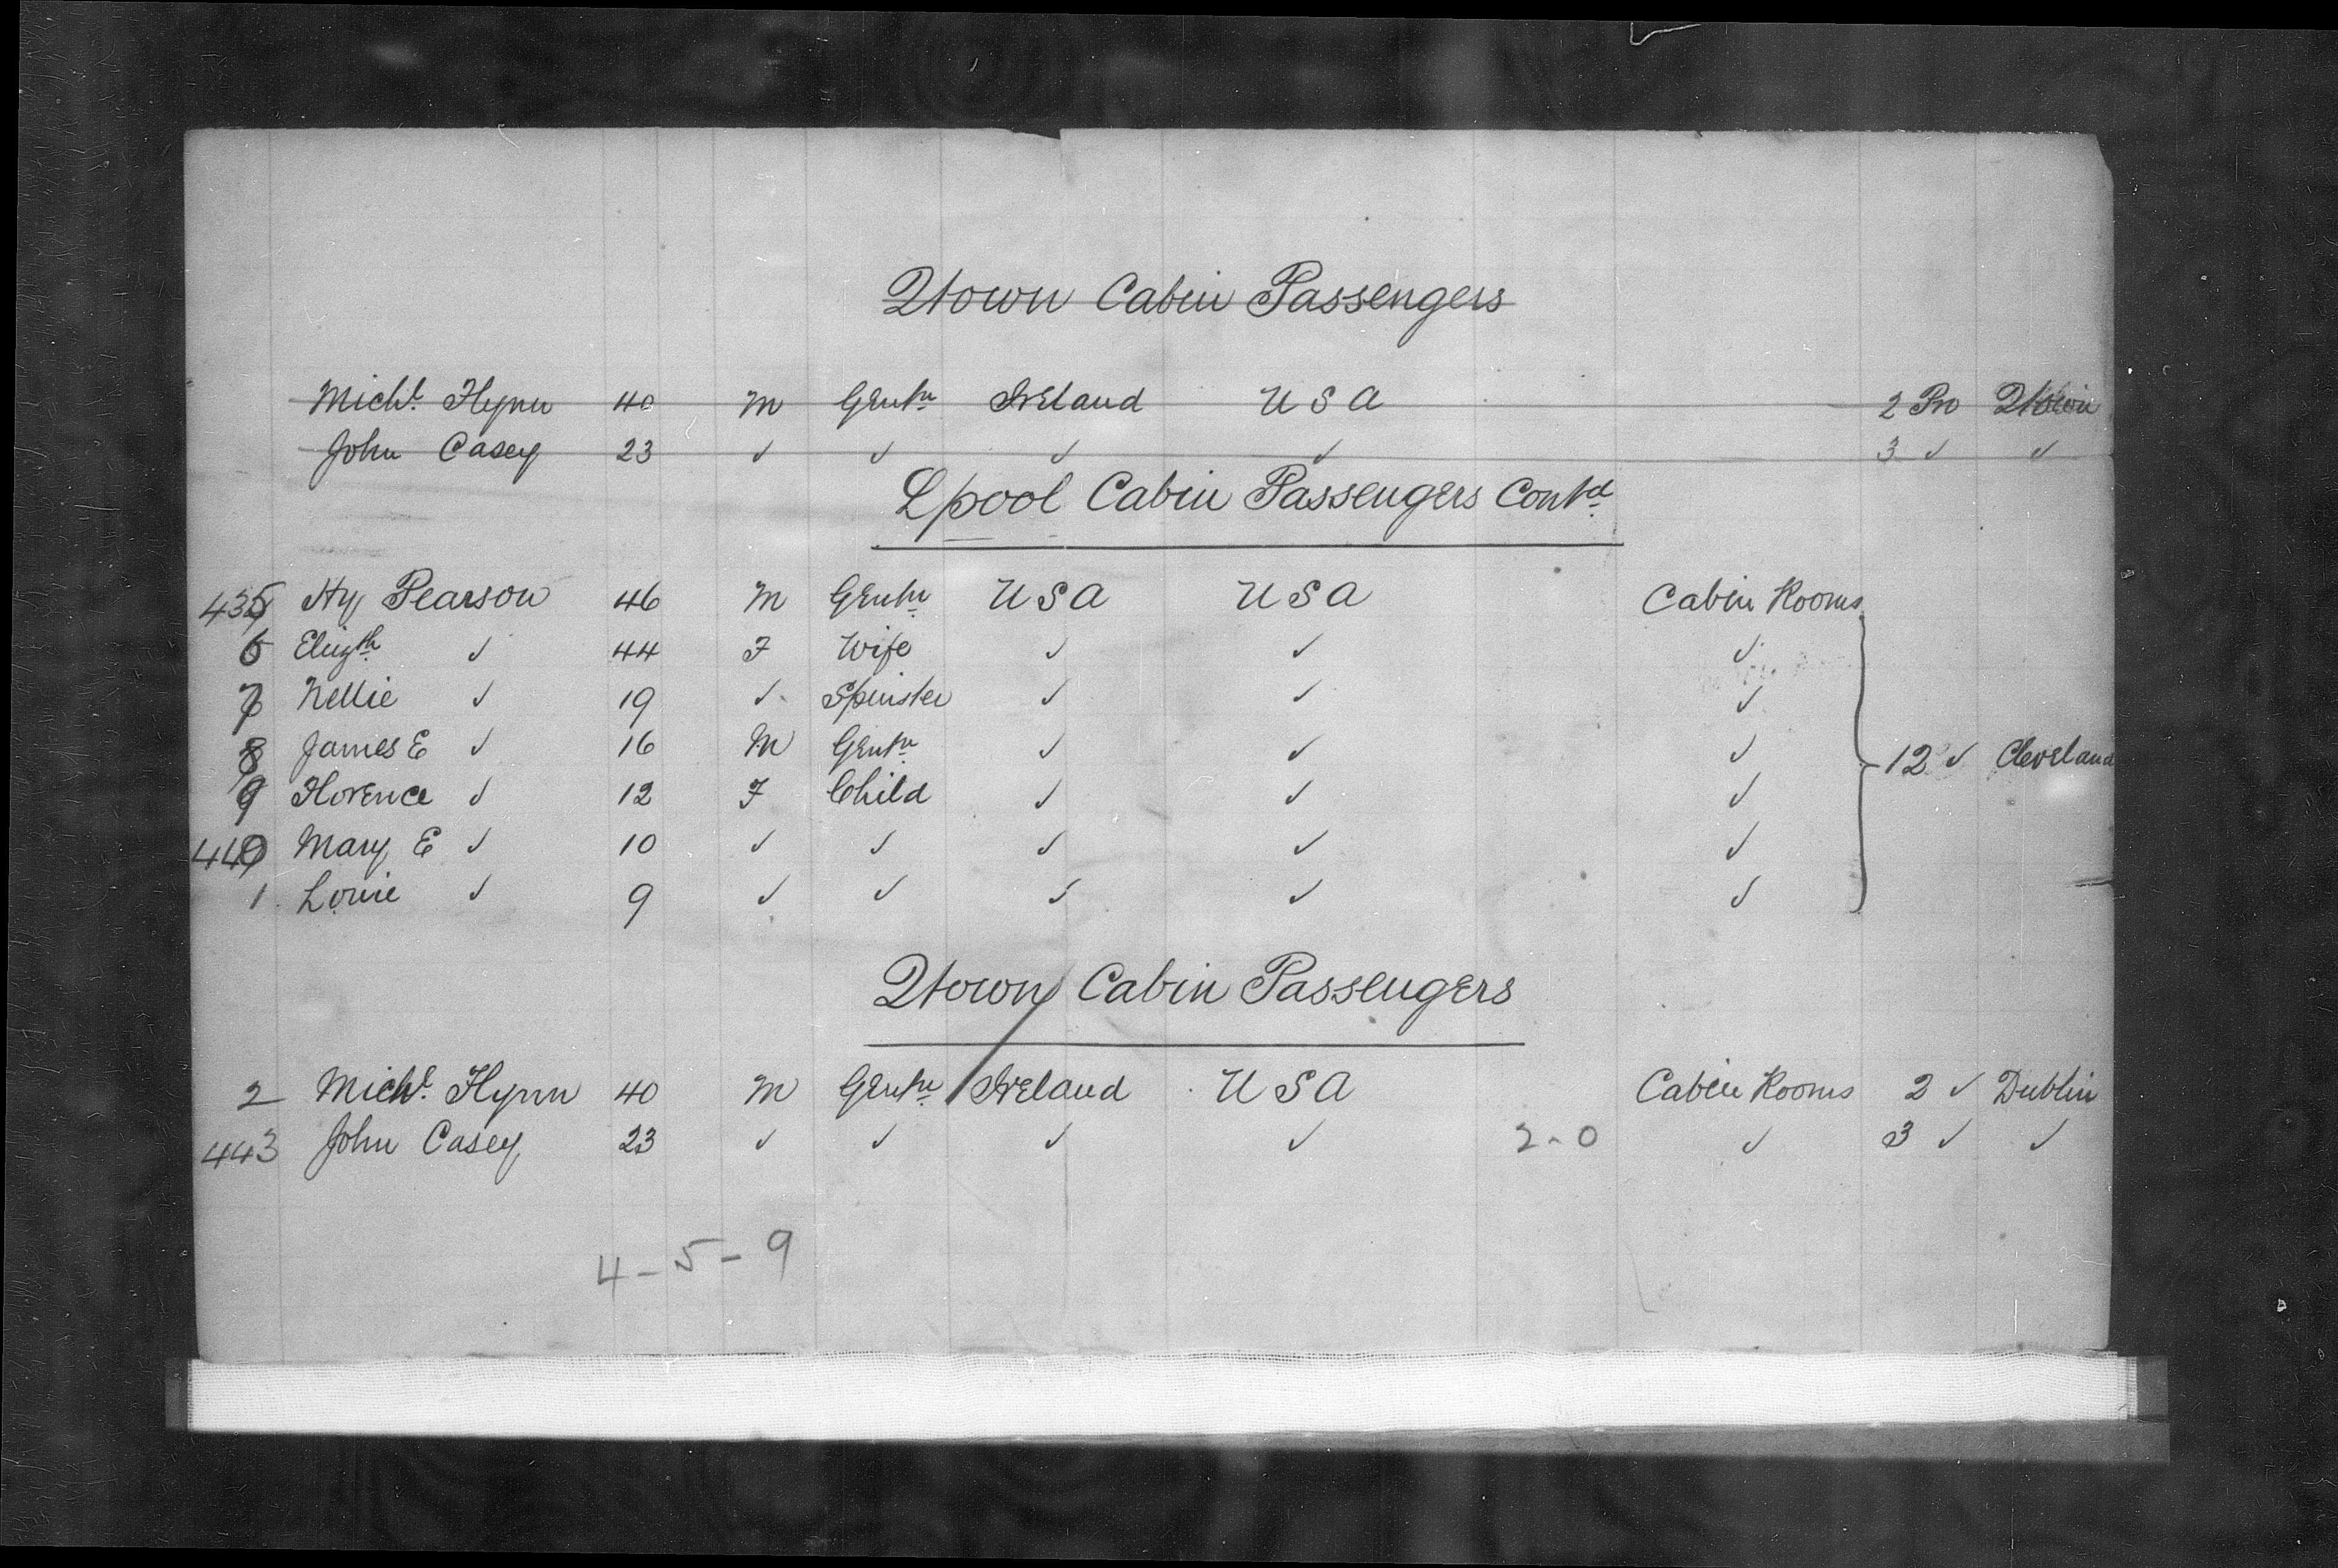 Qtown Cabin Passengers
Michl. Flynn 40 M Gentn Ireland U S A 2 Pro Qtown
John Casey 23 ✓ ✓ ✓ ✓ 3 ✓ ✓
Lpool Cabin Passengers Contd
435 Hy Pearson 46 M Gentn U S A U S A Cabin Rooms
6 Elizth ✓ 44 F Wife ✓ ✓ ✓
7 Nellie ✓ 19 ✓ Spinster ✓ ✓ ✓
8 James E ✓ 16 M Gentn ✓ ✓ ✓ 12 ✓ Cleveland
9 Florence ✓ 12 F Child ✓ ✓ ✓
440 Mary E ✓ 10 ✓ ✓ ✓ ✓ ✓
1 Louie ✓ 9 ✓ ✓ ✓ ✓ ✓
Qtown Cabin Passengers
2 Michl. Flynn 40 M Gentn Ireland U S A Cabin Rooms 2 ✓ Dublin
443 John Casey 23 ✓ ✓ ✓ ✓ 2-0 ✓ 3 ✓ ✓
4-5-9